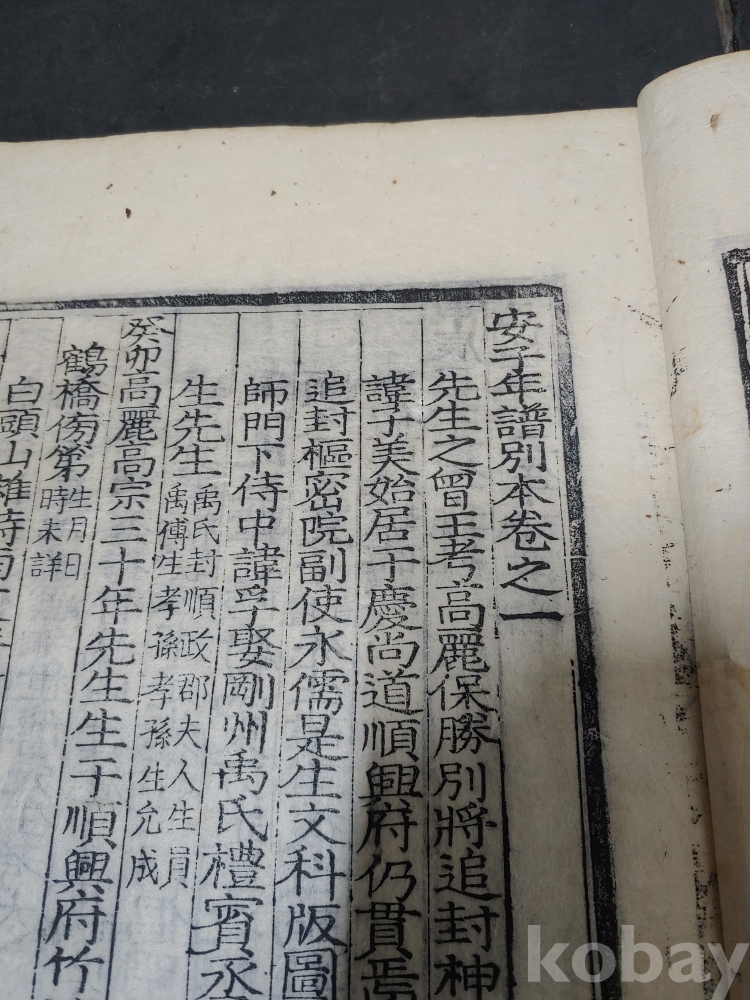 安子年譜別本卷之一
先生之曾王考高麗保勝別將追封神
諱子美始居于慶尚道順興府仍貫焉
追封樞密院副使永儒是生文科版圖
師門下侍中諱孚娶剛州禹氏禮賓丞
生先生禹氏封順政郡夫人生員
禹傅生孝孫孝孫生允成
癸卯高麗高宗三十年先生生于順興府竹
鶴橋傍第生月日
時未詳
白頭山
kobay